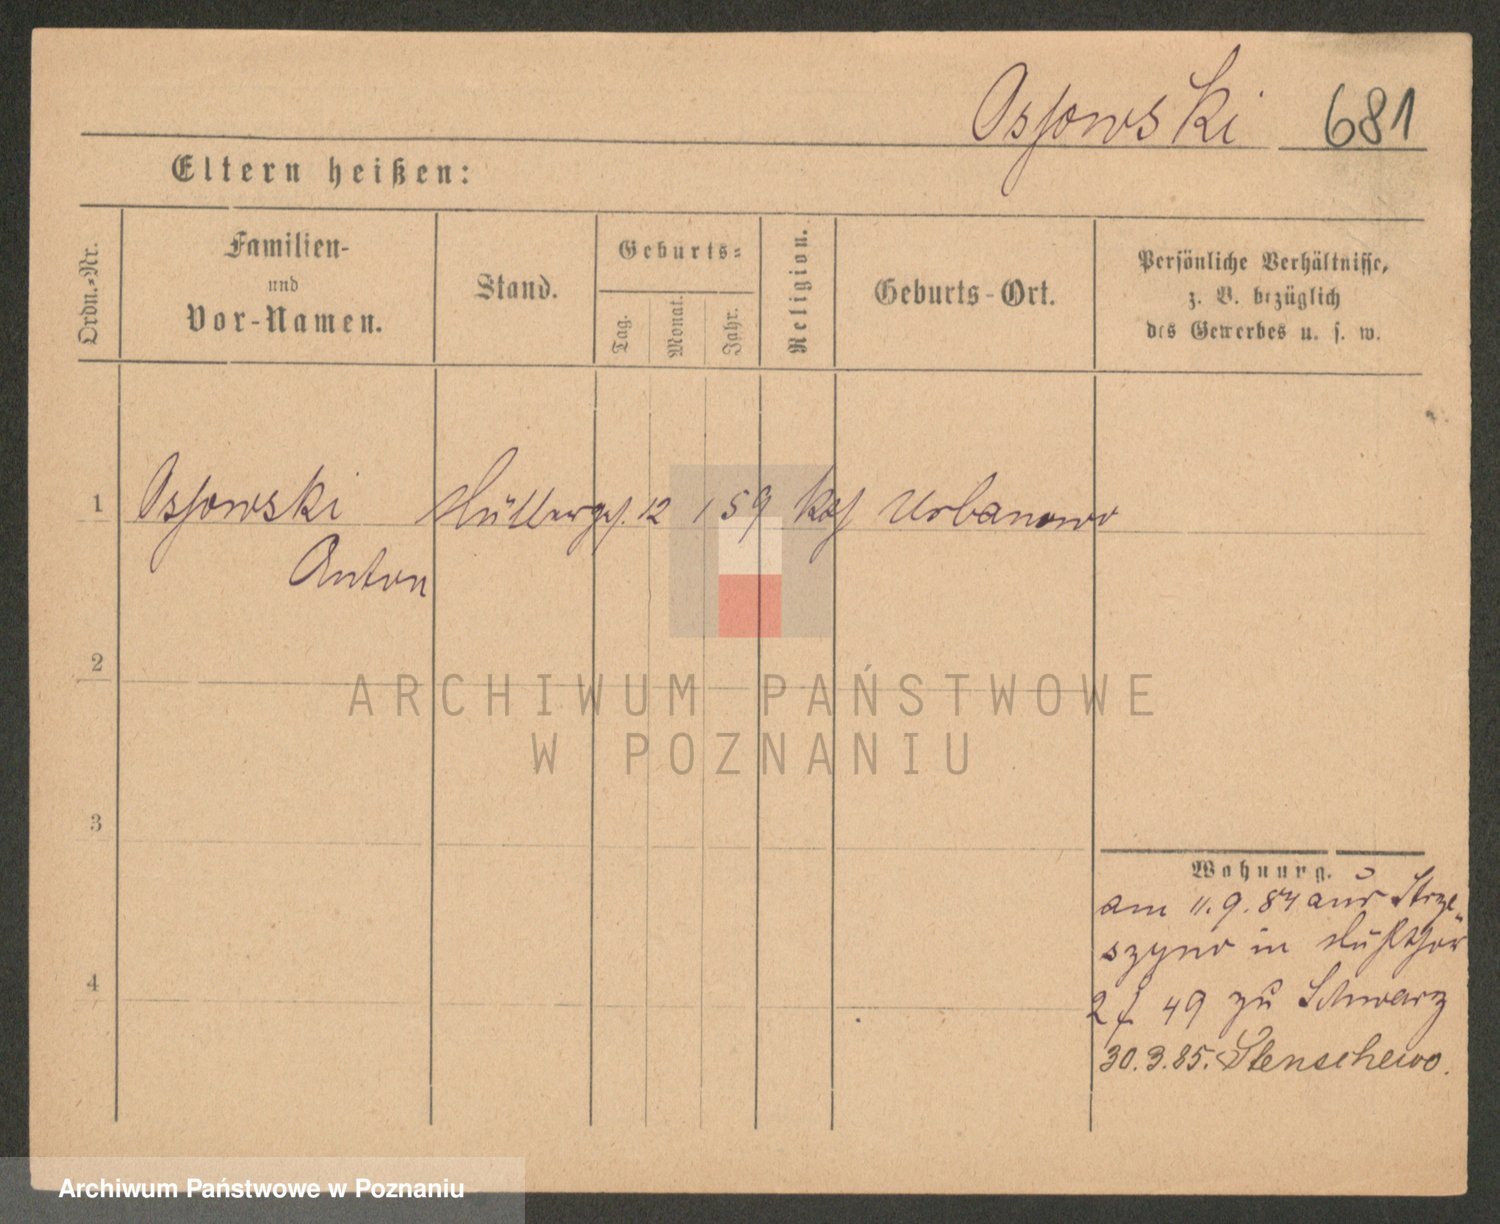 Ossowski 681
Eltern heißen:
Ordn.-Nr.
Familien-
und
Vor-Namen.
Stand.
Geburts-
Tag.
Monat.
Jahr.
Religion.
Geburts-Ort.
Persönliche Verhältnisse,
z. B. bezüglich
des Gewerbes u. s. w.
1 Ossowski Müllerges. 12 1 59 kath Urbanowo
Anton
2
3
4
Wohnung.
am 11.9.84 aus Strze-
szyno in Mühlthor
2 f 49 zu Schwarz
30.3.85. Stenschewo.
ARCHIWUM PAŃSTWOWE
W POZNANIU
Archiwum Państwowe w Poznaniu